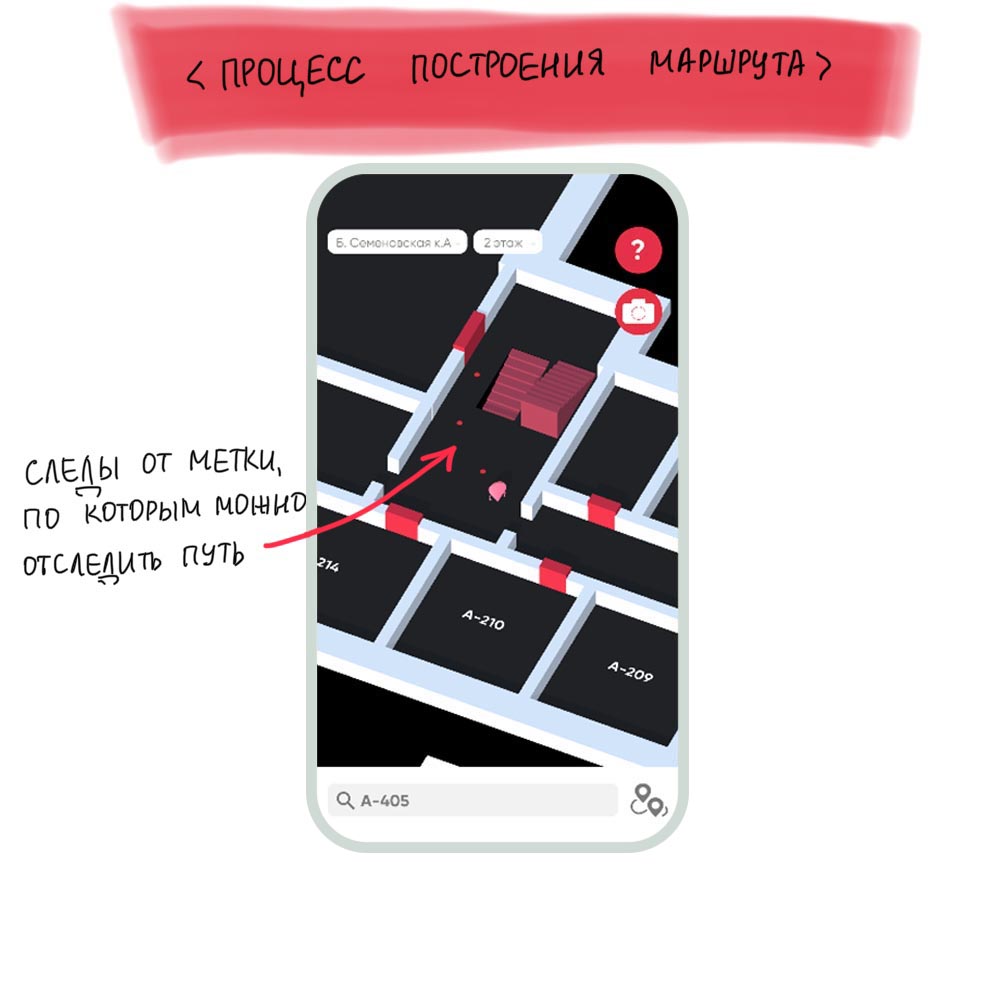 < ПРОЦЕСС ПОСТРОЕНИЯ МАРШРУТА >
Б. Семеновская к.А
2 этаж
?
СЛЕДЫ ОТ МЕТКИ,
ПО КОТОРЫМ МОЖНО
ОТСЛЕДИТЬ ПУТЬ
214
А-210
А-209
А-405